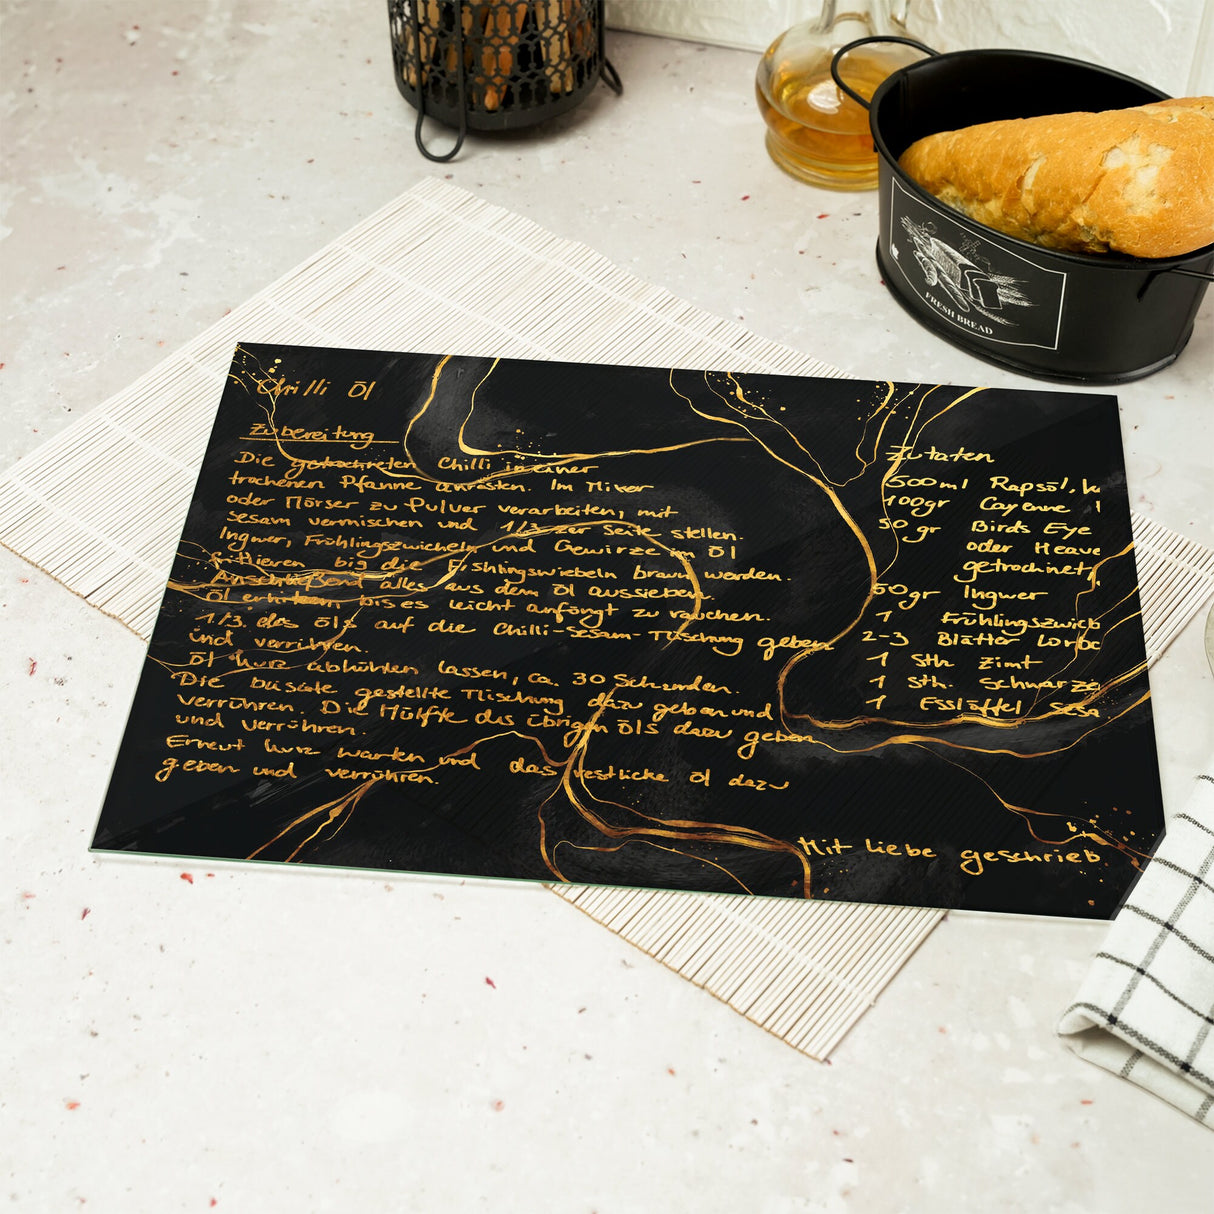 Chilli öl
Zubereitung
Die getrockneten Chilli in einer
trockenen Pfanne anrösten. Im Mixer
oder Mörser zu Pulver verarbeiten, mit
Sesam vermischen und 1/3 zur Seite stellen.
Ingwer, Frühlingszwiebeln und Gewürze im Öl
frittieren bis die Frühlingswiebeln braun werden.
Anschließend alles aus dem Öl aussieben.
Öl erhitzen bis es leicht anfängt zu rauchen.
1/3 des Öls auf die Chilli-Sesam-Mischung geben
und verrühren.
Öl kurz abkühlen lassen, ca. 30 Sekunden.
Die beiseite gestellte Mischung dazu geben und
verrühren. Die Hälfte des übrigen Öls dazu geben
und verrühren.
Erneut kurz warten und das restliche Öl dazu
geben und verrühren.
Zutaten
500ml Rapsöl, k
100gr Cayenne
50 gr Birds Eye
oder Heave
getrocknet
50gr Ingwer
1 Frühlingszwieb
2-3 Blätter Lorbe
1 Stk Zimt
1 Stk. Schwarze
1 Esslöffel Sesa
Mit Liebe geschrieb.
FRESH BREAD